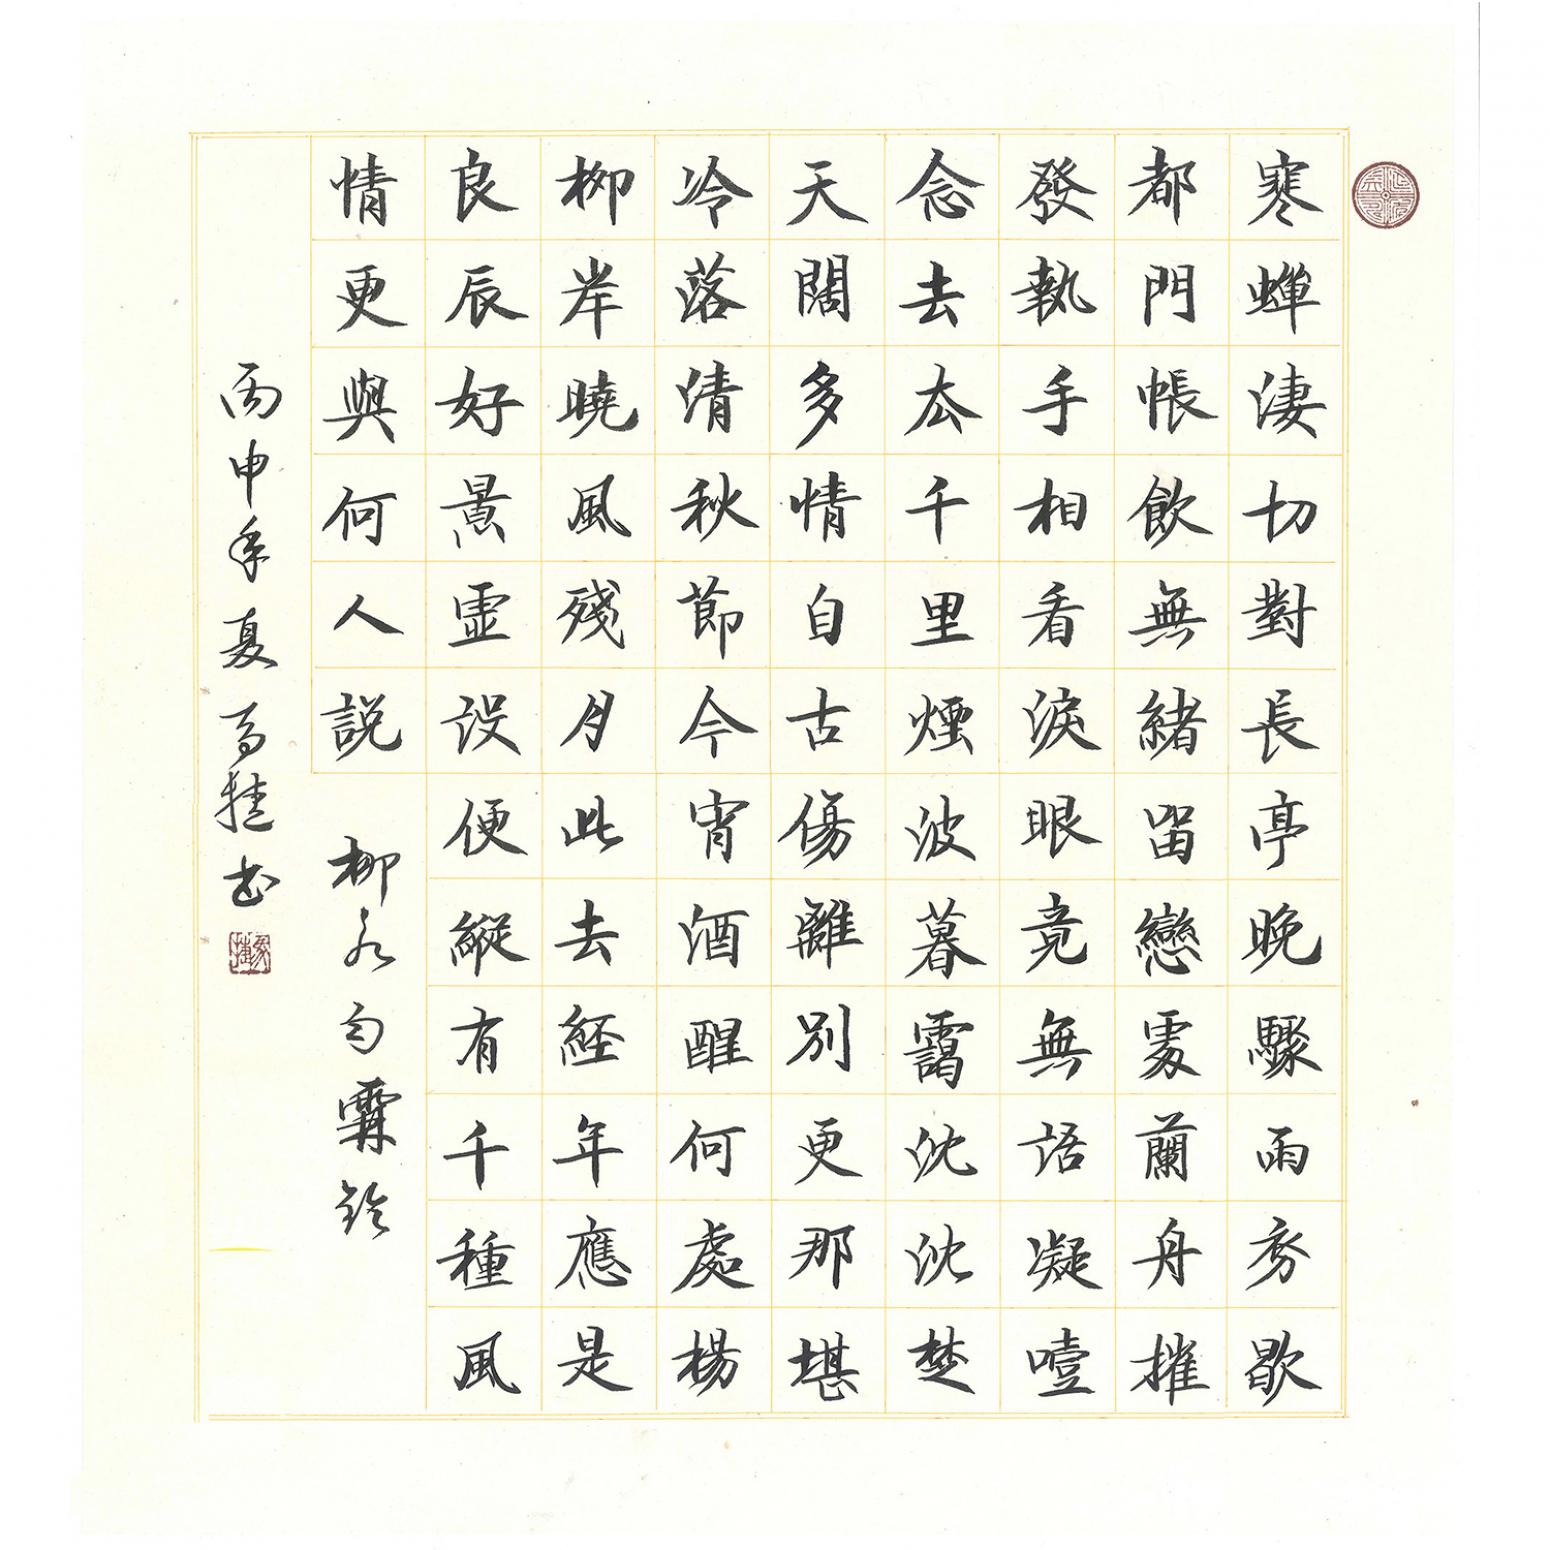 寒蟬淒切對長亭晚驟雨初歇
都門帳飲無緒留戀處蘭舟摧
發執手相看淚眼竟無語凝噎
念去去千里煙波暮靄沈沈楚
天闊多情自古傷離別更那堪
冷落清秋節今宵酒醒何處楊
柳岸曉風殘月此去經年應是
良辰好景虛設便縱有千種風
情更與何人說 柳永句霖鈴
丙申年夏馬書